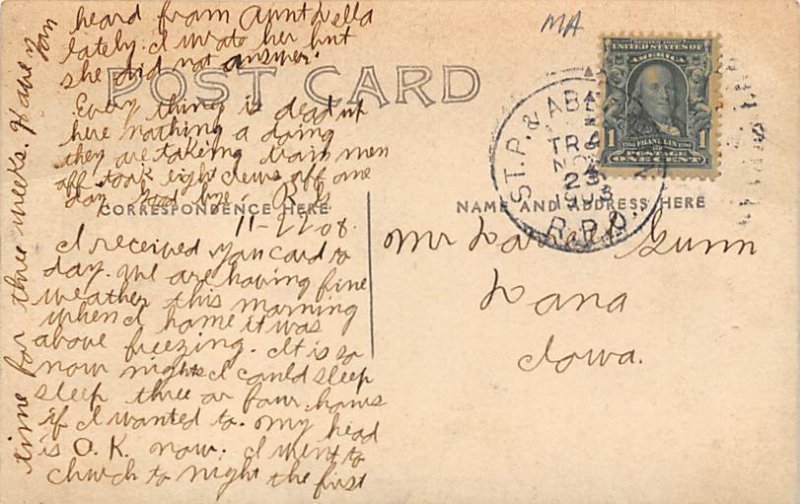 MA
POST CARD
CORRESPONDENCE HERE
NAME AND ADDRESS HERE
UNITED STATES OF
AMERICA
FRANKLIN
1 1
POSTAGE
ONE CENT
ST. P. & ABER
TR
NOV
23
R.P.O.
Mr Gunn
Dana
Iowa.
11-22-08.
I received you card to
day. We are having fine
weather this morning
when I home it was
above freezing. It is so
now nights I could sleep
sleep three or four hours
if I wanted to. My head
is O.K. now. I went to
church to night the first
time for three weeks. Have you
heard from Aunt Della
lately. I wrote her but
she did not answer.
Every thing is dead up
here nothing a doing
they are takeing train men
off took eight crews off one
day Good bye.